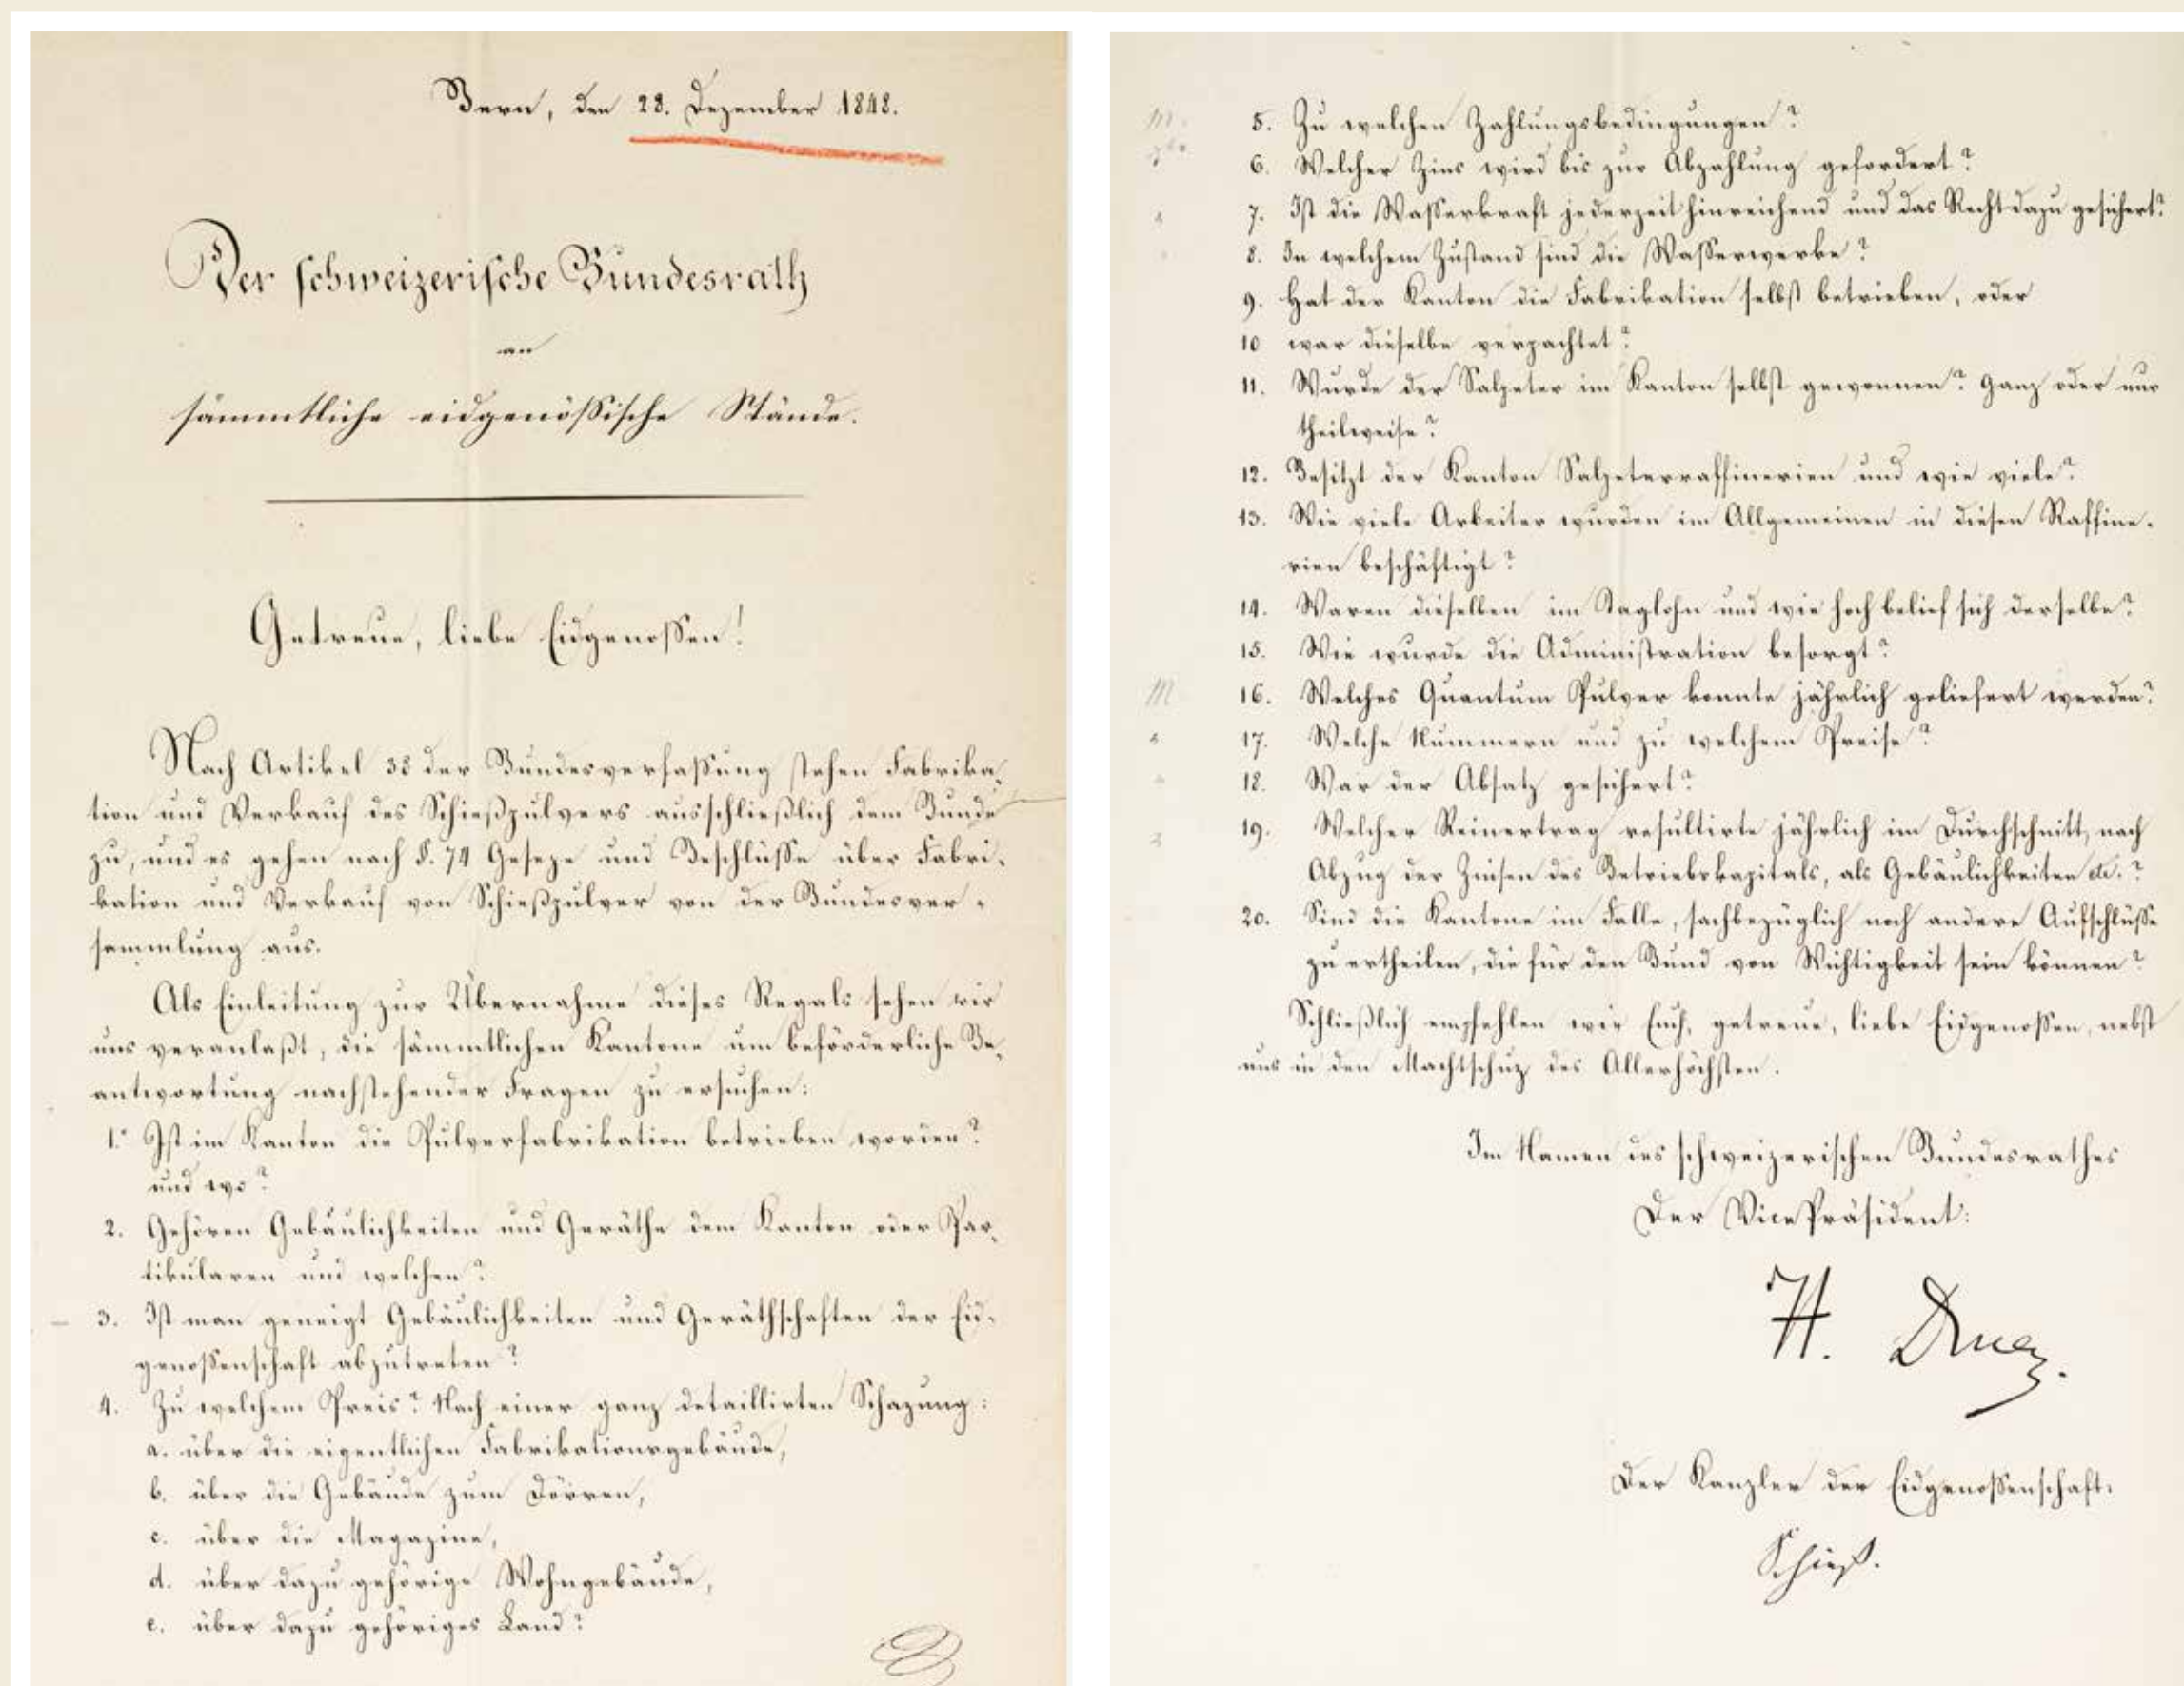 Bern, den 28. Dezember 1848.
Der schweizerische Bundesrath
an
sämmtliche eidgenößische Stände.
Getreue, liebe Eidgenossen!
Nach Artikel 38 der Bundesverfaßung stehen Fabrika-
tion und Verkauf des Schießpulvers ausschließlich dem Bunde
zu, und es gehen nach §. 74 Geseze und Beschlüsse über Fabri-
kation und Verkauf von Schießpulver von der Bundesver-
sammlung aus.
Als Einleitung zur Übernahme dieses Regals sehen wir
uns veranlaßt, die sämmtlichen Kantone um beförderliche Be-
antwortung nachstehender Fragen zu ersuchen:
1. Ist im Kanton die Pulverfabrikation betrieben worden?
und wo?
2. Gehören Gebäulichkeiten und Geräthe dem Kanton oder Par-
tikularen und welchen?
3. Ist man geneigt Gebäulichkeiten und Geräthschaften der Eid-
genossenschaft abzutreten?
4. Zu welchem Preis? Nach einer ganz detaillirten Schazung:
a. über die eigentlichen Fabrikationsgebäude,
b. über die Gebäude zum Dörren,
c. über die Magazine,
d. über dazu gehörige Wohngebäude,
e. über dazu gehöriges Land?
5. Zu welchen Zahlungsbedingungen?
6. Welcher Zins wird bis zur Abzahlung gefordert?
7. Ist die Wasserkraft jederzeit hinreichend und das Recht dazu gesichert?
8. In welchem Zustand sind die Wasserwerke?
9. Hat der Kanton die Fabrikation selbst betrieben, oder
10 war dieselbe verpachtet?
11. Wurde der Salpeter im Kanton selbst gewonnen? Ganz oder nur
theilweise?
12. Besitzt der Kanton Salpeterraffinerien und wie viele?
13. Wie viele Arbeiter wurden im Allgemeinen in diesen Raffine-
rien beschäftigt?
14. Waren dieselben im Taglohn und wie hoch belief sich derselbe?
15. Wie wurde die Administration besorgt?
16. Welches Quantum Pulver konnte jährlich geliefert werden?
17. Welche Nummern und zu welchem Preise?
18. War der Absatz gesichert?
19. Welcher Reinertrag resultirte jährlich im Durchschnitt, nach
Abzug der Zinsen des Betriebskapitals, als Gebäulichkeiten etc.?
20. Sind die Kantone im Falle, sachbezüglich noch andere Aufschlüsse
zu ertheilen, die für den Bund von Wichtigkeit sein können?
Schließlich empfehlen wir Euch, getreue, liebe Eidgenossen, nebst
uns in den Machtschuz des Allerhöchsten.
Im Namen des schweizerischen Bundesrathes
Der VicePräsident:
H. Druey.
Der Kanzler der Eidgenossenschaft:
Schieß.